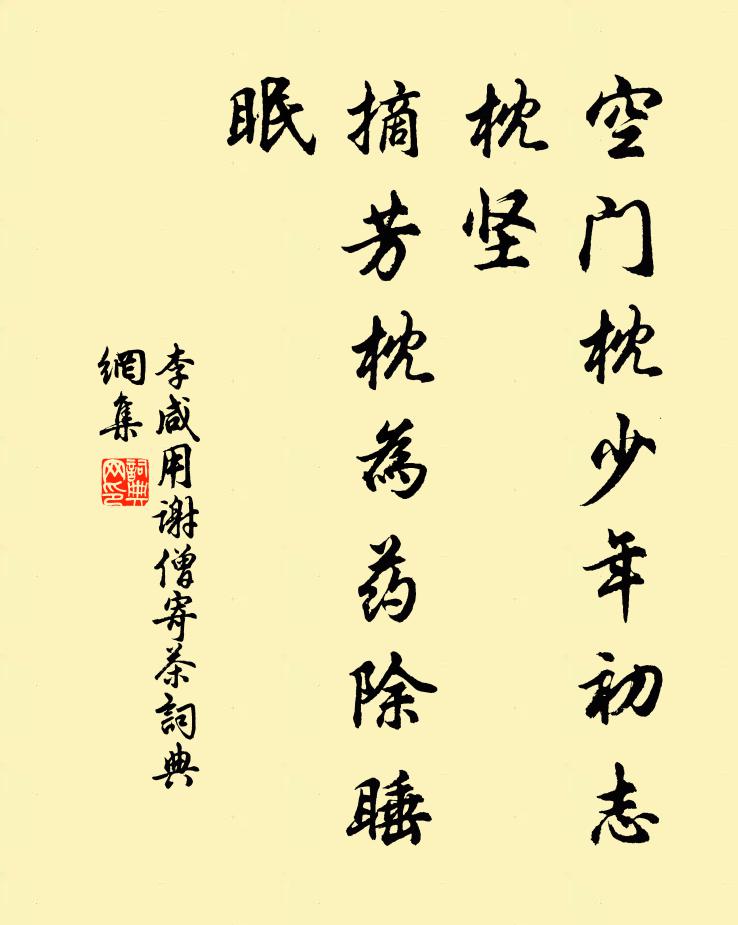 空门枕少年初志
枕坚
摘芳枕為药除睡
眠
李咸用谢僧寄茶詞典
網集
詞典网印